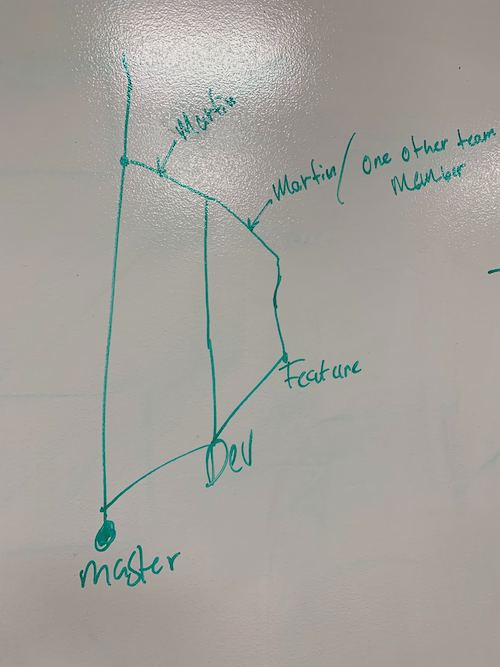 Martin
Martin/ one other team
Member
Feature
Dev
master